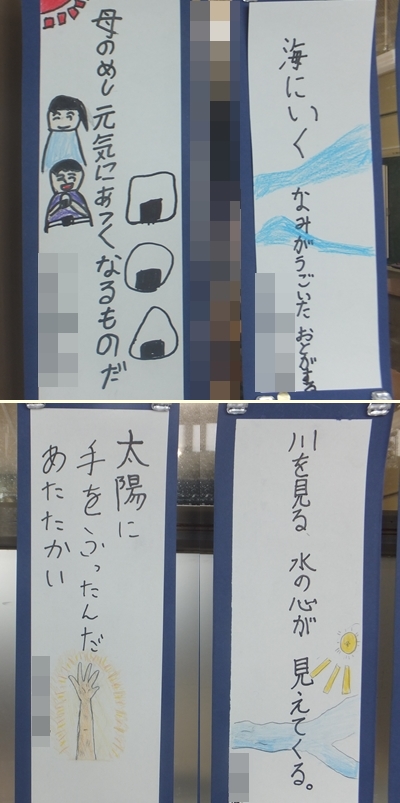 母のめし 元気にあつくなるものだ
海にいく なみがうごいた おとがする
太陽に
手をふったんだ
あたたかい
川を見る 水の心が 見えてくる。